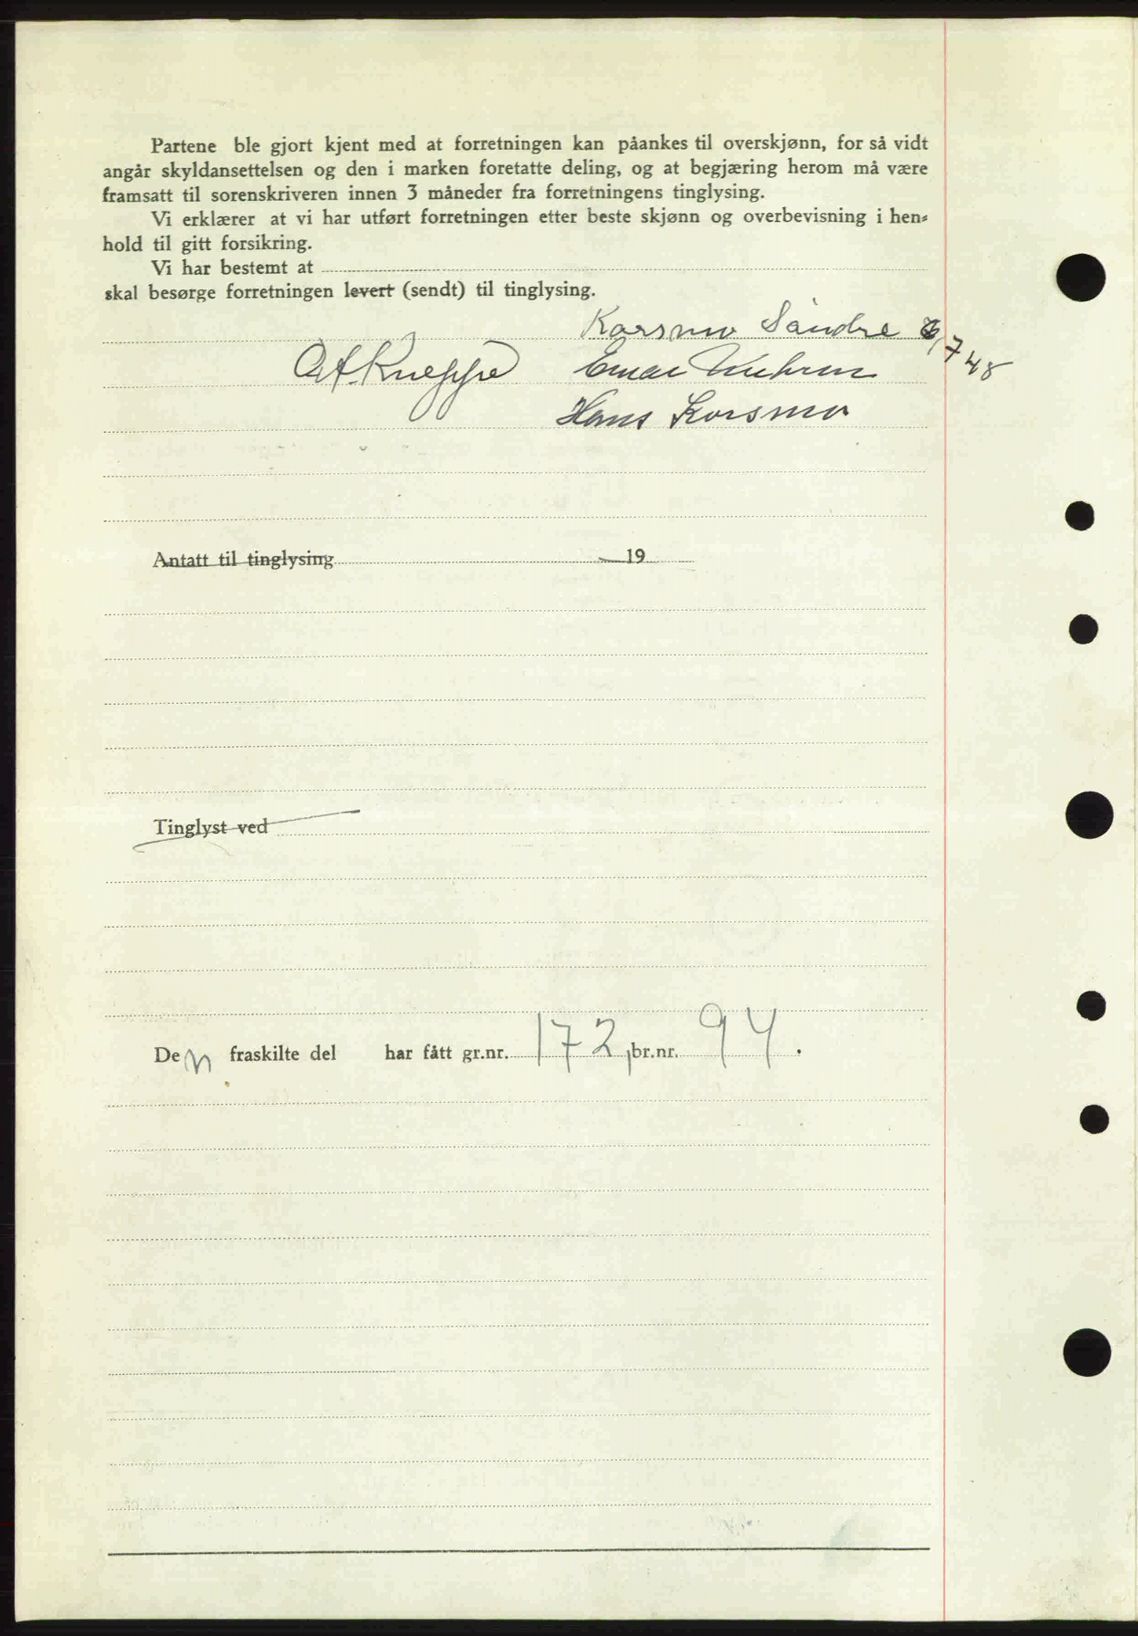 Partene ble gjort kjent med at forretningen kan påankes til overskjønn, for så vidt
angår skyldansettelsen og den i marken foretatte deling, og at begjæring herom må være
framsatt til sorenskriveren innen 3 måneder fra forretningens tinglysing.
Vi erklærer at vi har utført forretningen etter beste skjønn og overbevisning i hen-
hold til gitt forsikring.
Vi har bestemt at
skal besørge forretningen levert (sendt) til tinglysing.
Korsmo Søndre 7 48
Hans Korsmo
Antatt til tinglysing 19
Tinglyst ved
Den fraskilte del har fått gr.nr. 172, br.nr. 94.